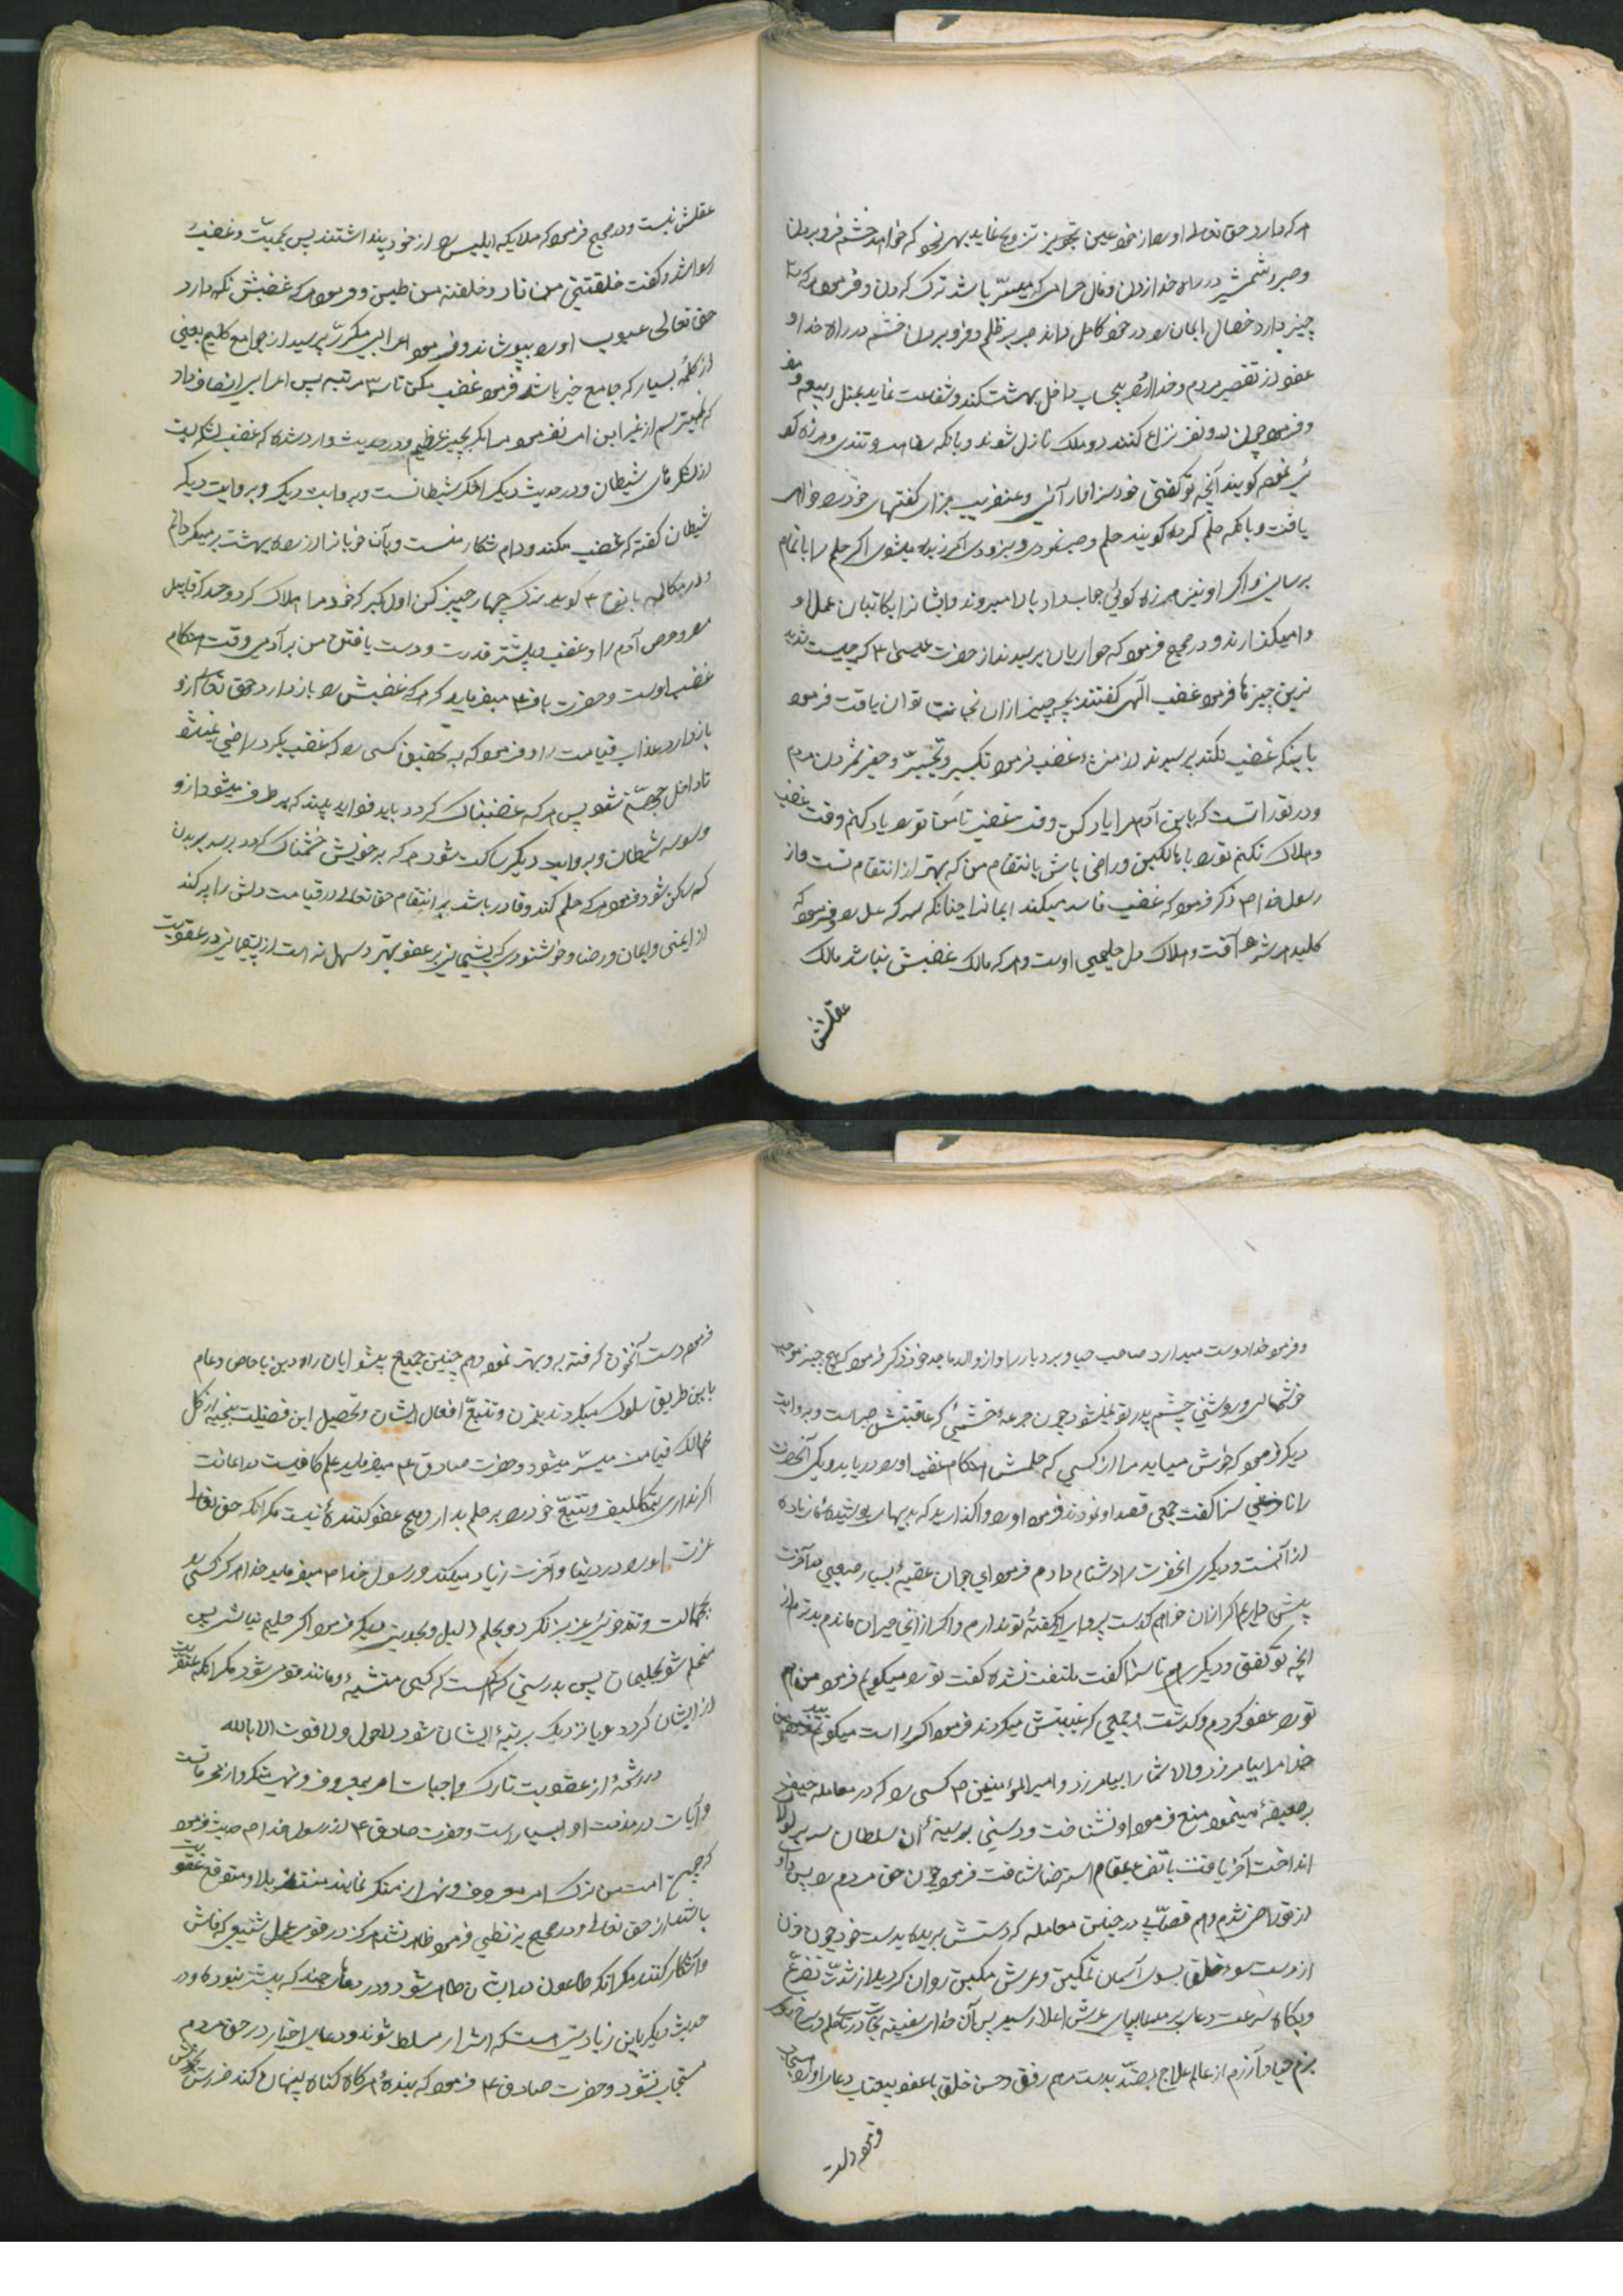 هر که دارد حق تعالی او را از حور عین تجویز تزویج نماید بهر نحو که خواهد خشم فرو بردن
و صبر شمشیر در راه خدا زدن و مال حرامی که میسر باشد ترک کردن و فرمود هر که سه
چیز دارد خصال ایمان را در خود کامل داند صبر بر ظلم و فرو بردن خشم در راه خدا و
عفو از تقصیر مردم و خدا او را بیحساب داخل بهشت کند و شفاعت نماید بمثل ربیعه و مضر
و فرمود چون دو نفر نزاع کنند دو ملک نازل شوند و بانکه سفاهت و تندی و هرزه کو
ئی نموده کویند آنچه تو گفتی خود سزاوار آنی و عنقریب جزای کفتهای خود را خواهی
یافت و بانکه حلم کرده کویند حلم و صبر نمودی و بزودی آمرزیده میشوی اکر حلم را باتمام
برسانی و اکر او نیز هرزه کوئی جواب داد بالا میروند و ایشانرا بکاتبان عمل او
وامیکذارند و در صحیح فرمود که حواریان پرسیدند از حضرت عیسی ع که چیست شدید
ترین چیزها فرمود غضب الهی کفتند بچه چیز از ان نجات توان یافت فرمود
باینکه غضب نکنند پرسیدند از منشاء غضب فرمود تکبر و تجبر و حقیر شمردن مردم
و در تورات است که یابن آدم مرا یاد کن وقت غضبت تا من ترا یاد کنم وقت غضبم
و هلاک نکنم تو را با هالکین و راضی باش بانتقام من که بهتر از انتقام تست و از
رسول خدا ص ذکر فرمود که غضب فاسد میکند ایمانرا چنانکه سرکه عسل را و فرمود که
کلید هر شر و آفت و هلاک دل حلیمی اوست و هر که مالک غضبش نباشد مالک
عقلش
عقلش نیست و در صحیح فرمود که ملایکه ابلیس را از خود پنداشتند پس بحمیت و غضب
رسوا شد و کفت خلقتنی من نار و خلقته من طین و فرمود هر که غضبش نکه دارد
حق تعالی عیوب او را بپوشاند و فرمود اعرابی مکرر پرسید از جوامع کلم یعنی
از کلمهٔ بسیار که جامع خیر باشد فرمود غضب مکن تا سه مرتبه پس اعرابی انصاف داد
که نمیترسم از غیر این امر نفرمود مرا مکر بچیز عظیم و در حدیث وارد شده که غضب لشکریست
از لشکرهای شیطان و در حدیث دیکر اخکر شیطانست و بروایت دیکر و بروایت دیکر
شیطان کفته که غضب مکند و دام شکار منست و بآن خوبانرا از راه بهشت بر میکردانم
و در مکالمه با نوح ع کوید ترک چهار چیز کن اول کبر که خود مرا هلاک کرد و حسد که قابیل
را و حرص آدم را و غضب و بیشتر قدرت و دست یافتن من بر آدمی وقت هنکام
غضب اوست و حضرت باقر ع میفرماید که هر که غضبش را باز دارد حق تعالی از او
باز دارد عذاب قیامت را و فرمود که به تحقیق کسی را که غضب بگیرد راضی نمیشود
تا داخل جهنم نشود پس هر که غضبناک کردد باید فوراً بنشیند که بر طرف میشود از او
وسوسه شیطان و بروایت دیکر ساکت شود هر که بر خویش خشمناک کردد برسد ببدن
که ساکن شود و فرمود هر که حلم کند و قادر باشد بر انتقام حق تعالی در قیامت دلش را پر کند
از ایمنی و ایمان و رضا و خوشنودی که پشیمانی بر عفو بهتر و سهل تر است از پشیمانی در عقوبت
و فرمود خدا دوست میدارد صاحب حیا و بردبار را و از والد ماجد خود ذکر فرمود که هیچ چیز موجب
خوشحالی و روشنی چشم پدر تو نمیشود چون جرعهٔ خشمی که عاقبتش صبر است و بروایت
دیکر فرمود که خوش میاید مرا از کسی که حلمش هنکام غضب او را دریابد و یکی آنحضرت
را ناسزا کفت جمعی قصد او نمودند فرمود او را واکذارید که بدیهای پوشیدهٔ ما زیاده
از آنست و دیکری انحضرت را دشنام دادم فرمود ای جوان عقبهٔ بسیار صعبی در آخرت
پیش داریم اکر از ان خواهم کذشت پروای کفتهٔ تو ندارم و اکر از انجا حیران ماندم بدترم از
انچه تو کفتی و دیکری هم ناسزا کفت ملتفت نشده کفت ترا میکویم فرمود من هم
تو را عفو کردم و کذشت و جمعی که غیبتش میکردند فرمود اکر راست میکوئید
خدا مرا بیامرزد و الا شما را بیامرزد و امیرالمؤمنین ع کسی را که در معامله حیف
بر ضعیفهٔ مینمود منع فرمود او نشناخت و دستی بر سینهٔ آن سلطان سریر لولاک
انداخت آخر یافت بمقام استرضا شتافت فرمود چون حق مردم را پس داد
از تو راضی شدم و هم قصابی در چنین معامله که دستش بریده بدست خود چون خون
از دست سوء خلق بسوی آسمان تمکین و عرش مکین روان کردید از شدت تضرع
و بکاه سرعت دعا بپای عرش اعلا رسید پس آن خدای سفینه نجات دریای حلم و
بزم حیا و آزرم از عالم علاج بضد بدست مرهم رفق و حسن خلق با عفو بیعتاب دعای او را مستجاب
فرمود دست
فرمود دست آنحضرت کرفته برو بهت نمود و هم چنین جمیع پیشوایان راه دین با خاص و عام
باین طریق سلوک میکردند بقرن و تتبع افعال ایشان و تحصیل این فضیلت منجیه از کل
مهالک قیامت میسر میشود و حضرت صادق ع میفرماید حلم کافیست در اعانت
اکر نداری بتکلیف و تتبع خود را بر حلم بدار و هیچ عفو کنندهٔ نیست مکر انکه حق تعالی
عزت او را در دنیا و آخرت زیاد میکند و رسول خدا ص میفرماید خدا هرکز کسی را
بجهالت و تندخوئی عزیز نکرد و بحلم ذلیل و بحدیث دیکر فرمود اکر حلیم نباشی پس
متحلم شو بحلیمان پس بدرستی که کم است که کسی متشبه و مانند قومی شود مکر انکه عنقریب
از ایشان کردد و یا نزدیک برتبهٔ ایشان شود لاحول ولا قوت الا بالله
در رشحهٔ از عقوبت تارک واجبات امر بمعروف و نهی منکر و از محرماتست
و آیات در مذمت او بسیار است و حضرت صادق ع از رسول خدا ص حدیث فرمود
که جمیع امت من ترک امر معروف و نهی از منکر نمایند منتظر بلا و متوقع عقوبت
باشند از حق تعالی و در صحیح بزنطی فرمود ظاهر نشد هرکز در قومی عمل شنیعی که فاش
و آشکار کنند مکر انکه طاعون در ایشان ظاهر شود و دردهای چند که پیشتر نبوده و در
حدیث دیکر باین زیادتی است که اشرار مسلط شوند و دعای اخیار در حق مردم
مستجاب نشود و حضرت صادق ع فرمود که بندهٔ هر کاه کناه پنهان کند ضررش بخودش